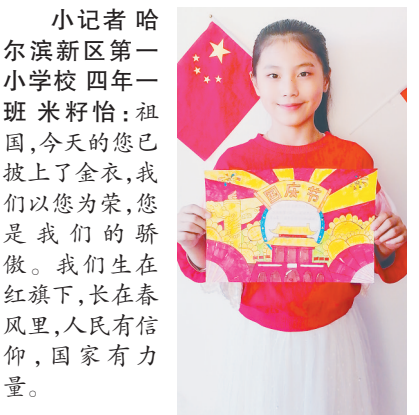 小记者 哈
尔滨新区第一
小学校 四年一
班 米籽怡:祖
国,今天的您已
披上了金衣,我
们以您为荣,您
是我们的骄
傲。我们生在
红旗下,长在春
风里,人民有信
仰,国家有力
量。
国庆节